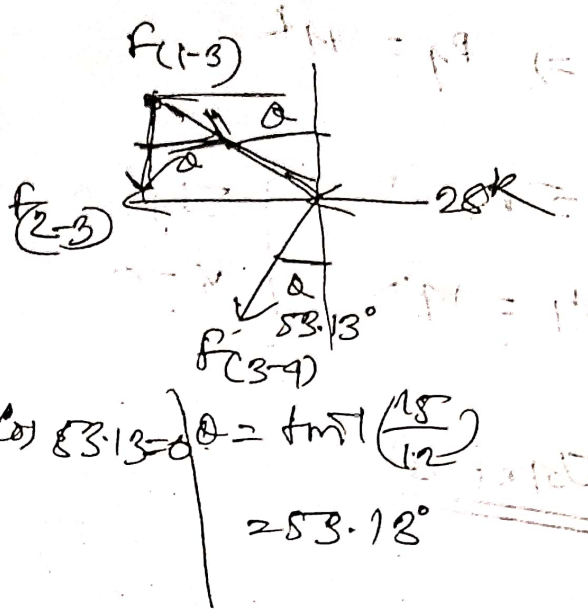 F(1-3)
θ
θ
F(2-3)
28k
θ
53.13°
F(3-4)
Cos 53.13=0
θ = tan-1(15/12)
=53.13°